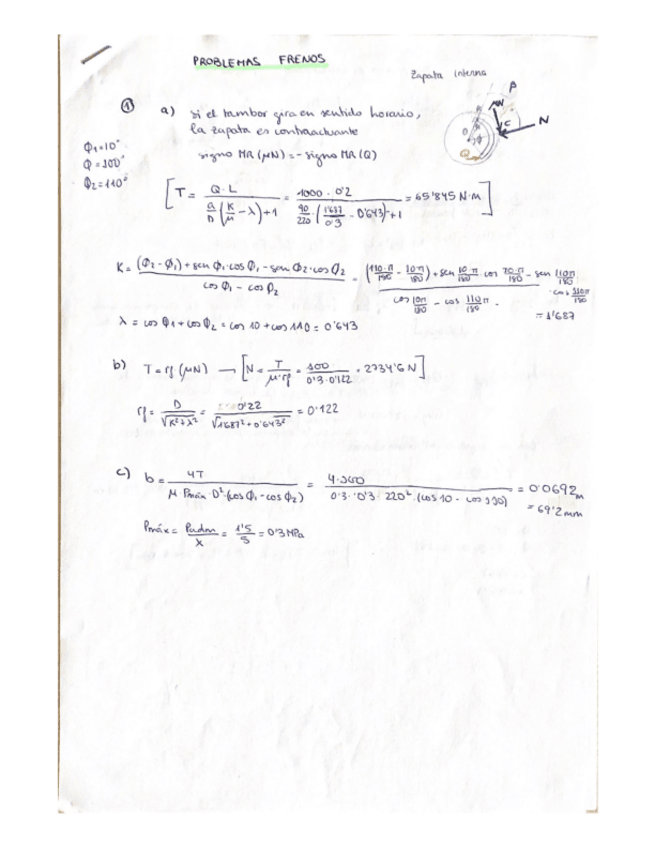 PROBLEMAS FRENOS
Zapata interna
① a) si el tambor gira en sentido horario,
la zapata es contraactuante
signo MR (μN) = - signo MR (Q)
ϕ1=10°
ϕ=100°
ϕ2=110°
P
μN
N
C
O
Q
[T = Q·L / (a/D (K/μ - λ) + 1) = 1000·0'2 / (90/220 · (1'687/0'3 - 0'643) + 1) = 65'845 N·m]
K = ((ϕ2-ϕ1) + sen ϕ1·cos ϕ1 - sen ϕ2·cos ϕ2) / (cos ϕ1 - cos ϕ2) = ((110·π/180 - 10π/180) + sen 10·π/180 cos 10·π/180 - sen 110π/180 · cos 110π/180) / (cos 10π/180 - cos 110π/180) = 1'687
λ = cos ϕ1 + cos ϕ2 = cos 10 + cos 110 = 0'643
b) T = rf (μN) → [N = T / μ·rf = 100 / 0'3·0'122 = 2734'6 N]
rf = D / √(K²+λ²) = 0'22 / √(1'687² + 0'643²) = 0'122
c) b = 4T / (μ·Pmáx·D²·(cos ϕ1 - cos ϕ2)) = 4·100 / (0'3·0'3·220²·(cos 10 - cos 110)) = 0'0692 m
= 69'2 mm
Pmáx = Padm / X = 1'5 / 5 = 0'3 MPa